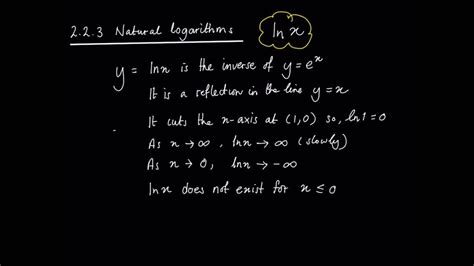 2.2.3 Natural logarithms ln x
y = ln x is the inverse of y = e^x
It is a reflection in the line y = x
It cuts the x-axis at (1,0) so, ln 1 = 0
As x → ∞, ln x → ∞ (slowly)
As x → 0, ln x → -∞
ln x does not exist for x ≤ 0